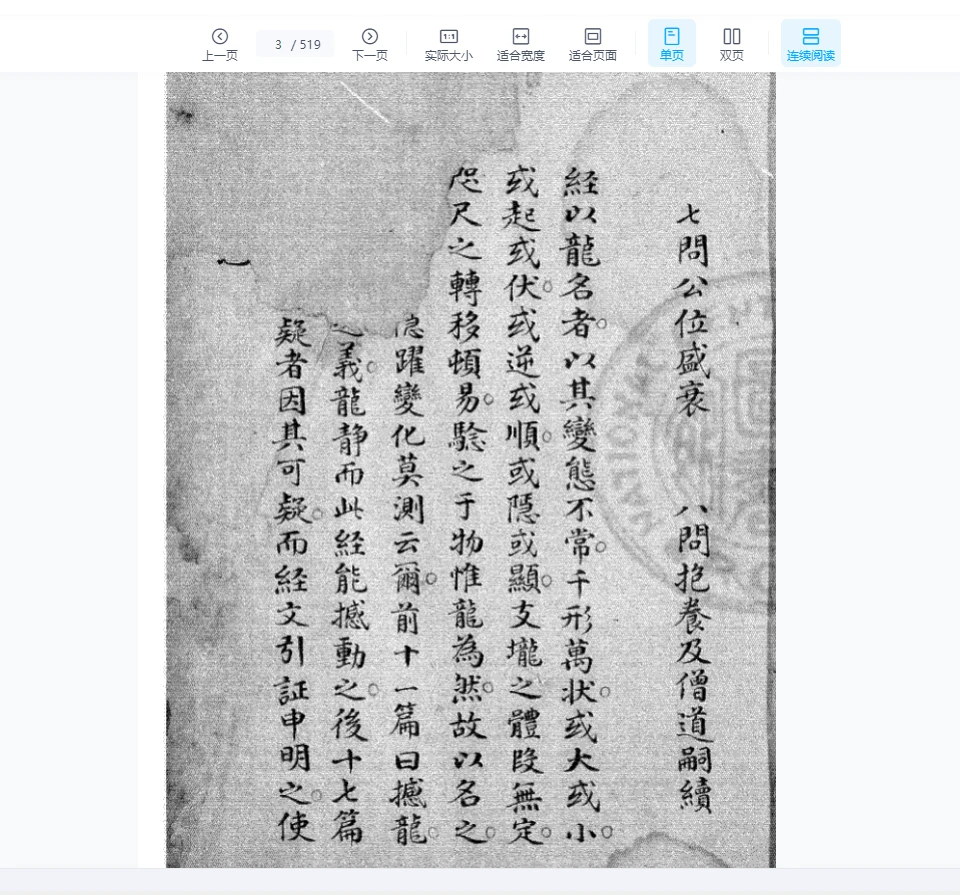 上一页
3 / 519
下一页
1:1
实际大小
适合宽度
适合页面
单页
双页
连续阅读
七問公位盛衰 八問抱養及僧道嗣續
経以龍名者以其變態不常千形萬状或大或小
或起或伏或逆或順或隱或顯支壠之體段無定
咫尺之轉移頓易驗之于物惟龍為然故以名之
躍變化莫測云爾前十一篇曰撼龍
義龍静而此経能撼動之後十七篇
疑者因其可疑而経文引証申明之使